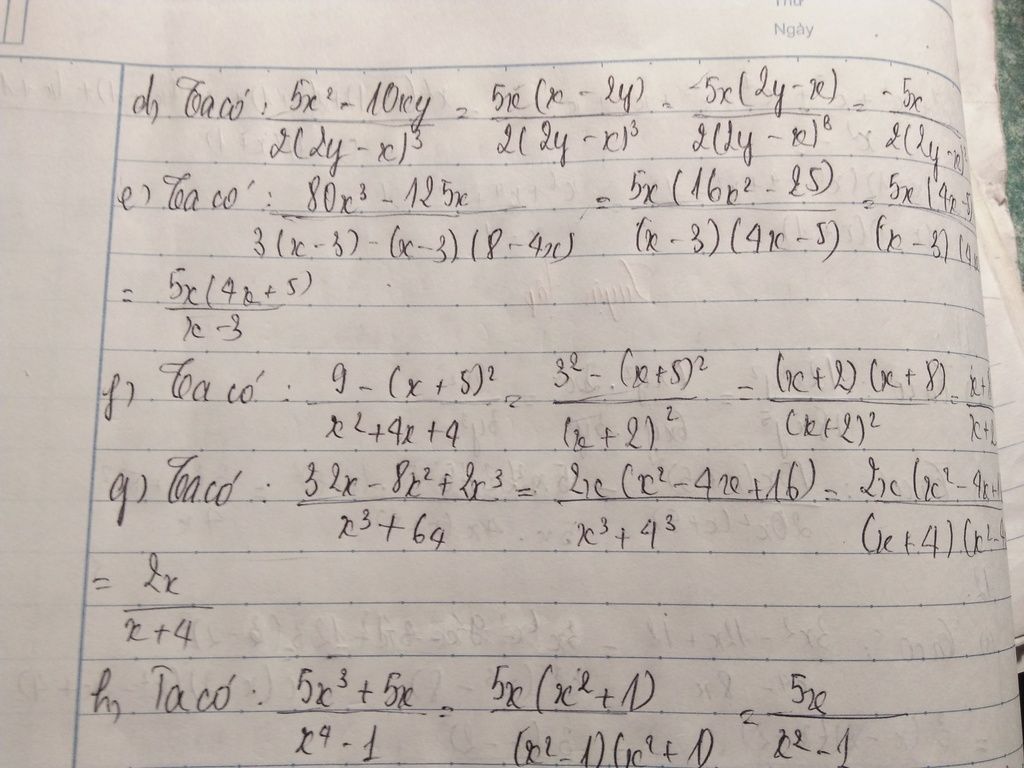 Thứ
Ngày
d) Ta có: (5x² - 10xy)/(2(2y - x)³) = (5x(x - 2y))/(2(2y - x)³) = (-5x(2y - x))/(2(2y - x)³) = (-5x)/(2(2y - x)
e) Ta có: (80x³ - 125x)/(3(x - 3) - (x - 3)(8 - 4x)) = (5x(16x² - 25))/((x - 3)(4x - 5)) = (5x(4x - 5)/((x - 3)(4x
= (5x(4x + 5))/(x - 3)
f) Ta có: (9 - (x + 5)²)/(x² + 4x + 4) = (3² - (x + 5)²)/((x + 2)²) = ((x + 2)(x + 8))/((x + 2)²) = (x +)/(x +
g) Ta có: (32x - 8x² + 2x³)/(x³ + 64) = (2x(x² - 4x + 16))/(x³ + 4³) = (2x(x² - 4x +)/((x + 4)(x² -
= (2x)/(x + 4)
h, Ta có: (5x³ + 5x)/(x⁴ - 1) = (5x(x² + 1))/((x² - 1)(x² + 1)) = (5x)/(x² - 1)